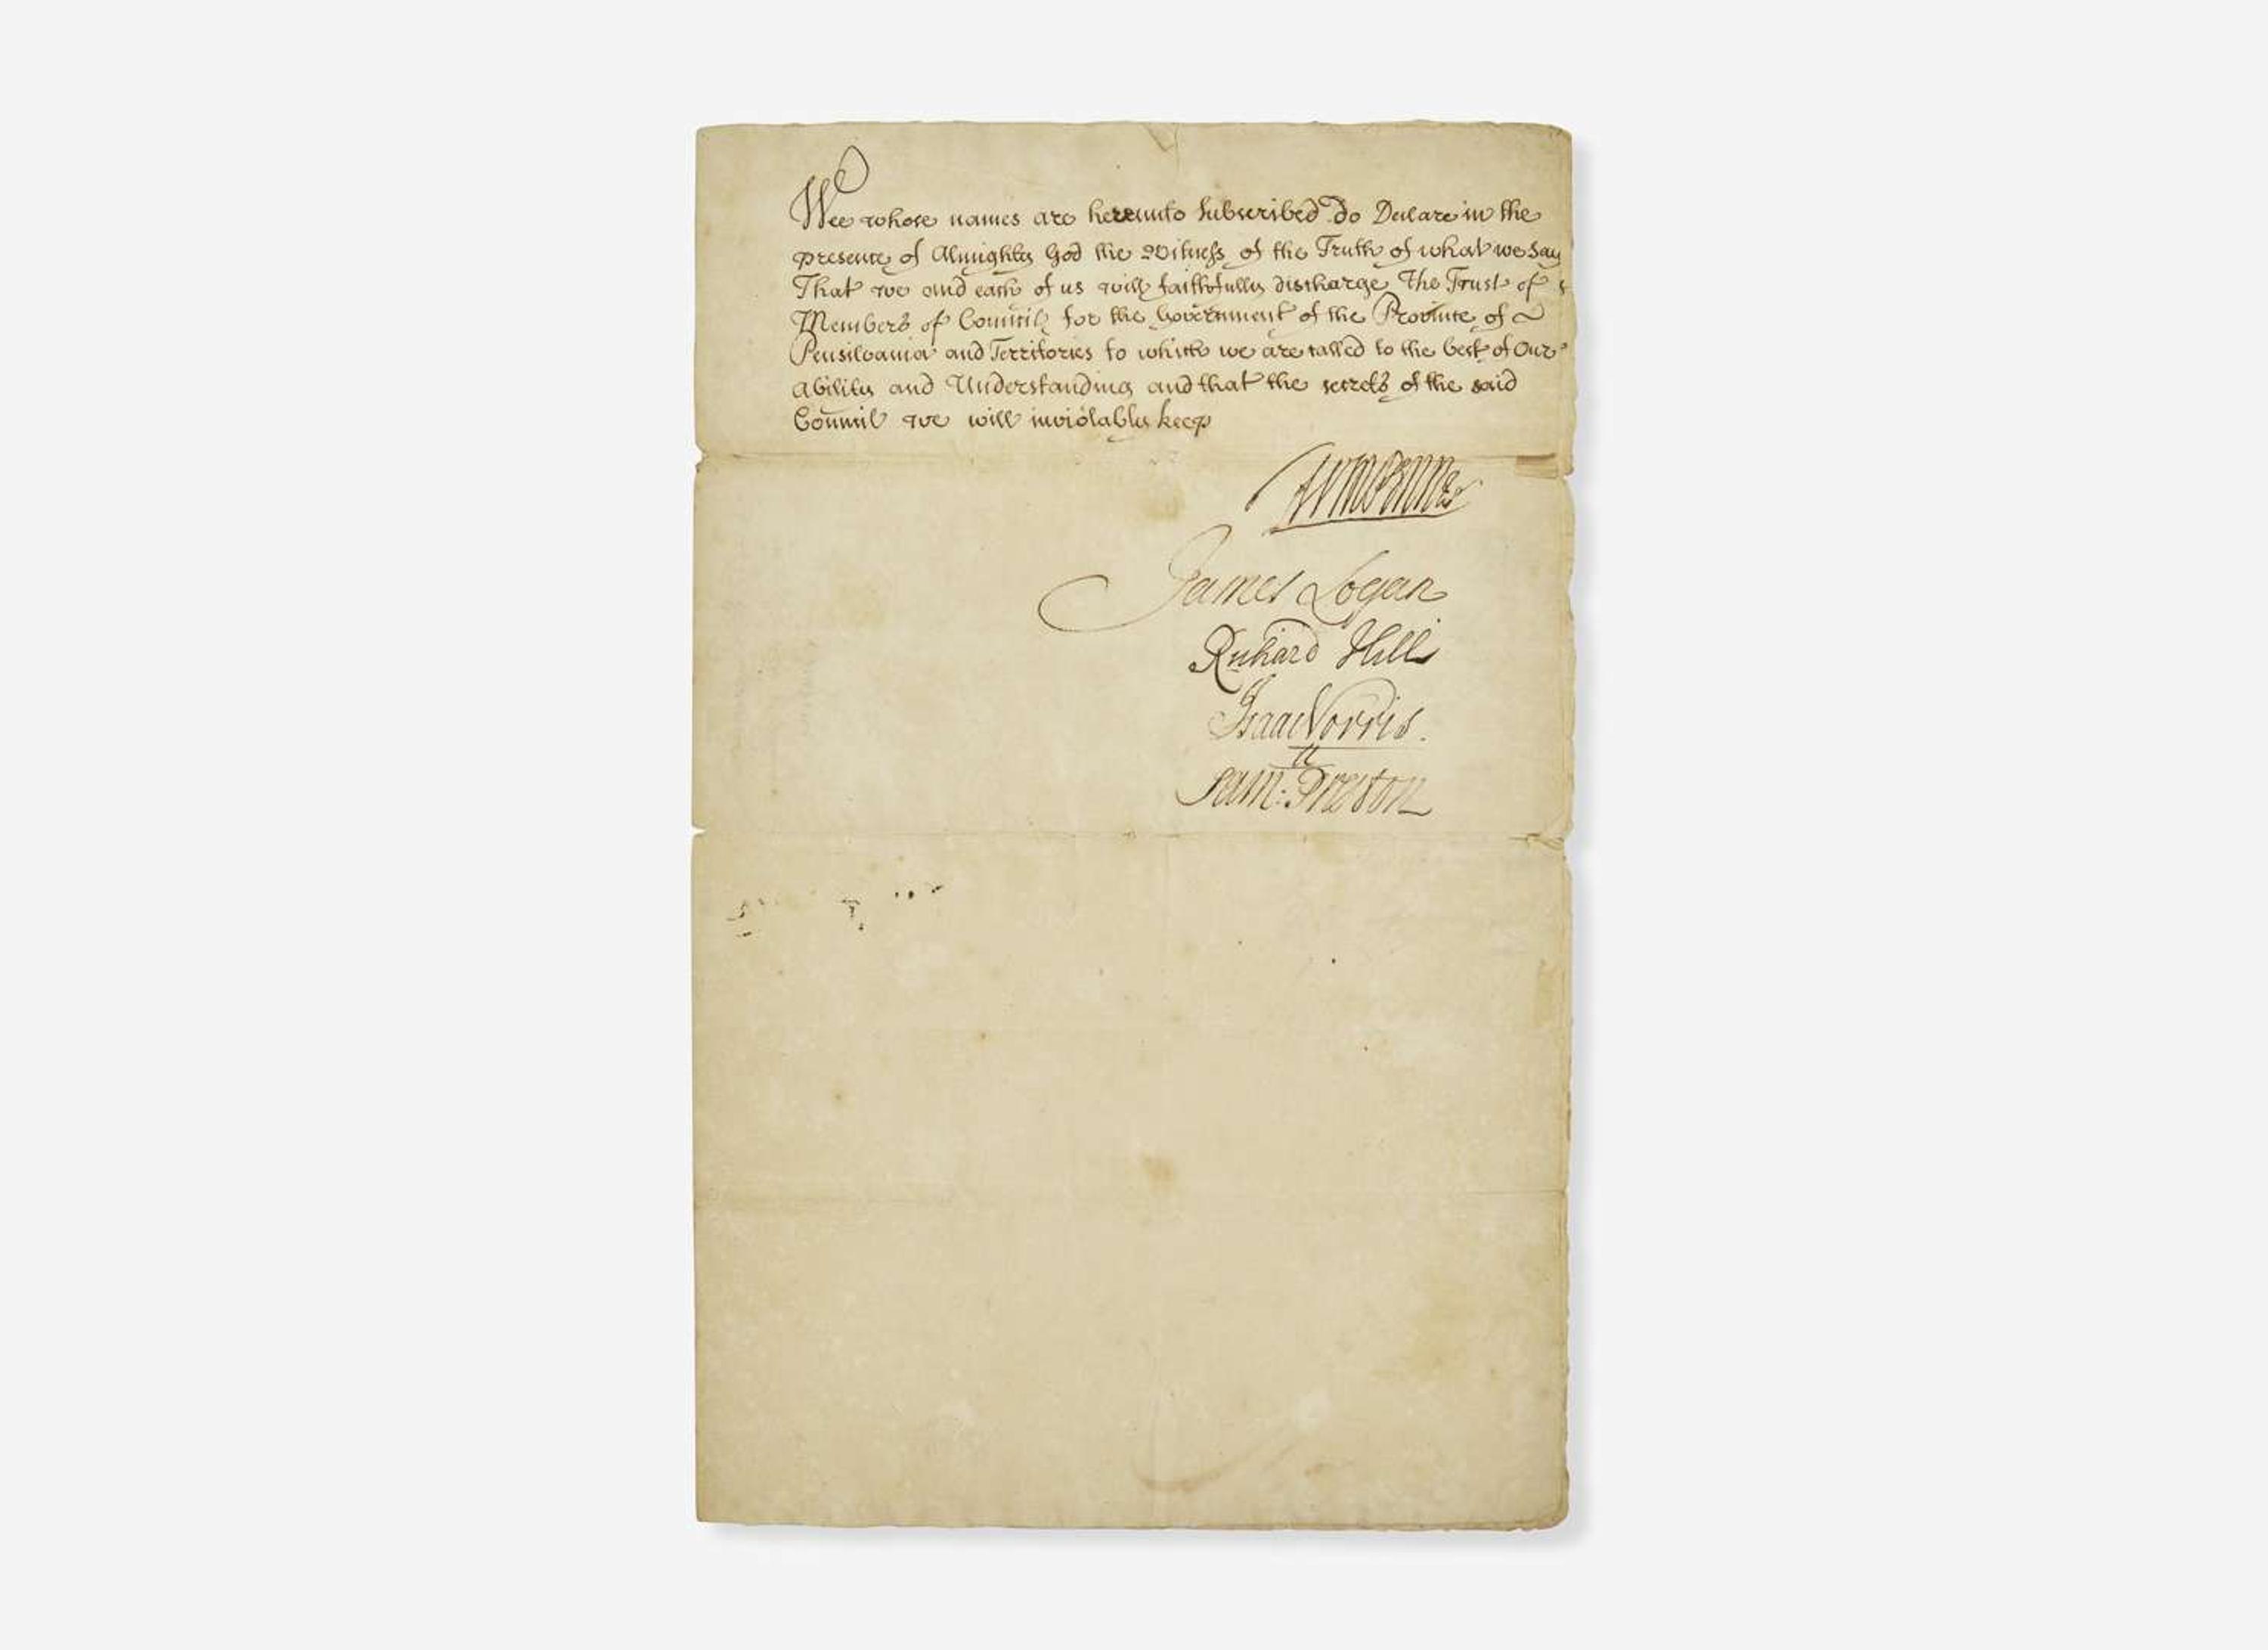 Wee whose names are hereunto subscribed do Declare in the
presence of Almighty God the Witness of the Truth of what we say
That we and each of us will faithfully discharge The Trust of
Members of Council for the Government of the Province of
Pensilvania and Territories to which we are called to the best of Our
Ability and Understanding and that the secrets of the said
Council we will inviolably keep
Wm Penn
James Logan
Richard Hill
Isaac Norris.
Sam:ll Preston